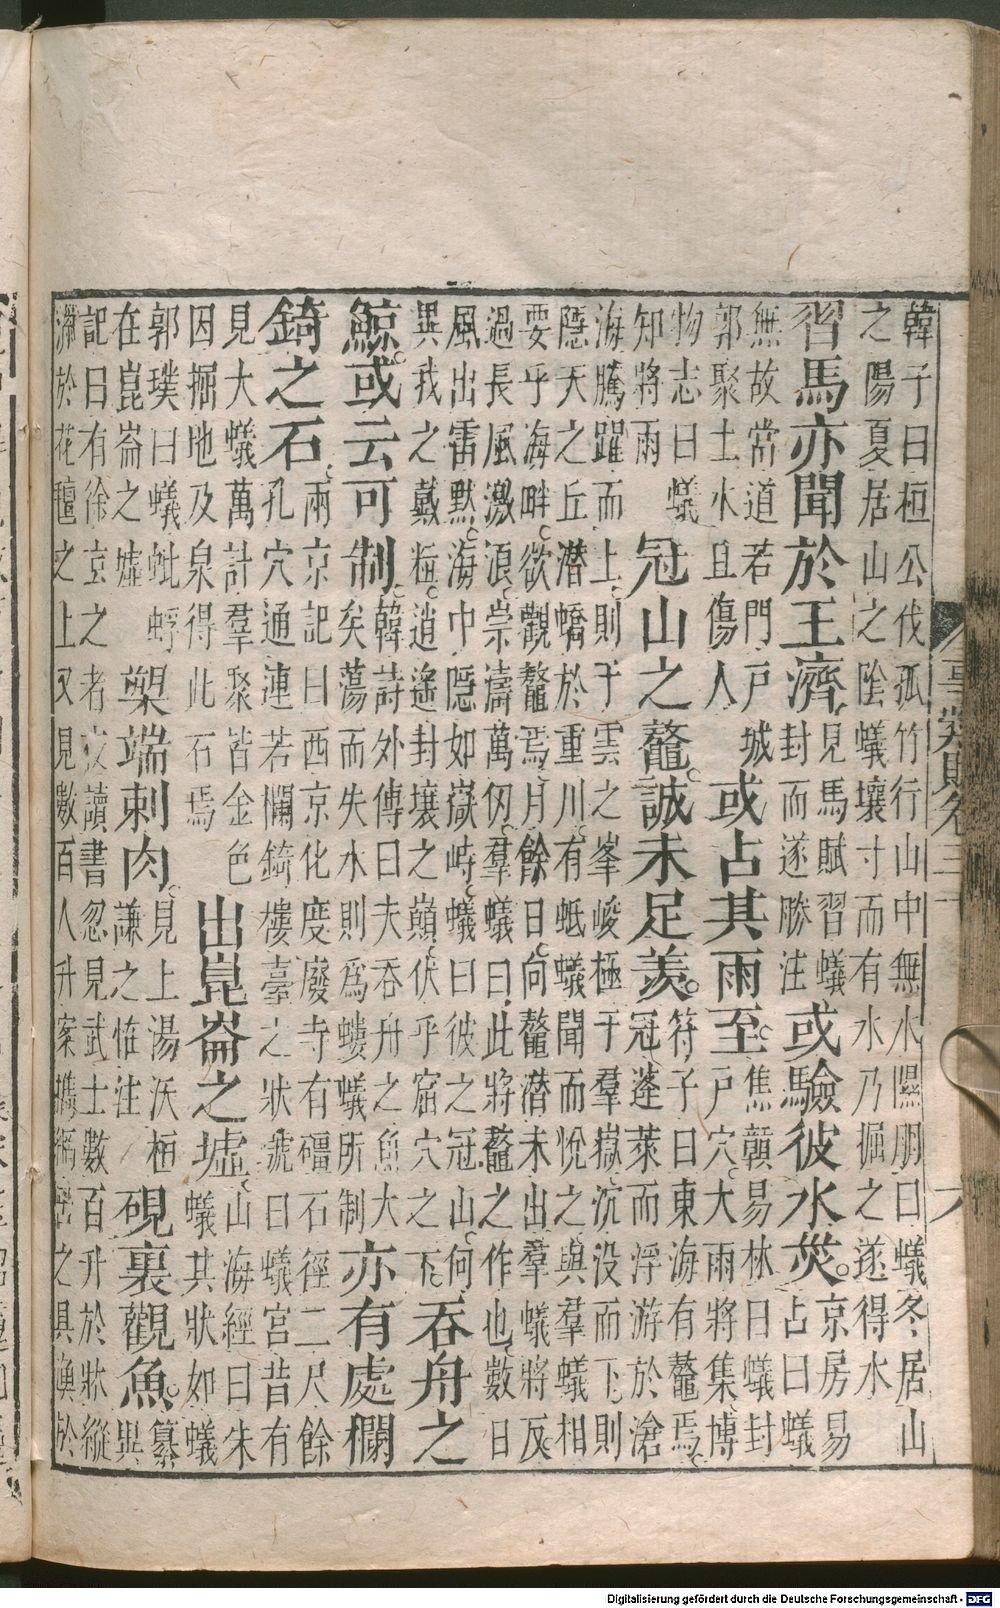 韓子曰桓公伐孤竹行山中無水隰朋曰蟻冬居山
之陽夏居山之陰蟻壤寸而有水乃掘之遂得水
習馬亦聞於王濟見馬賦習蟻封而遂勝注或驗彼水災京房易占曰蟻
無故當道若門戶城郭聚土水且傷人或占其雨至焦贛易林曰蟻封戶穴大雨將集博
物志曰蟻知將雨冠山之鼇誠未足羨符子曰東海有鼇焉冠蓬萊而浮游於滄
海騰躍而上則干雲之峯峻極干羣嶽沉没而下則
隱天之丘潛蟜於重川有蚳蟻聞而悅之與羣蟻相
要乎海畔欲觀鼇焉月餘日向鼇潛未出羣蟻將反
過長風激浪崇濤萬仭羣蟻曰此將鼇之作也數日
風出雷默海中隱如嶽峙蟻曰彼之冠山何異我之戴粒逍遙封壤之巔伏乎窟穴之下吞舟之
鯨或云可制韓詩外傳曰夫吞舟之魚大矣蕩而失水則爲螻蟻所制亦有處欄
錡之石兩京記曰西京化度廢寺有礓石徑二尺餘孔穴通連若欄錡樓臺之狀號曰蟻宮昔有
見大蟻萬計羣聚皆金色因掘地及泉得此石焉出崑崙之墟山海經曰朱蟻其狀如蟻
郭璞曰蟻蚍蜉在崑崙之墟槊端刺肉見上湯沃桓謙之恠注硯裏觀魚纂異
記曰有徐玄之者夜讀書忽見武士數百升於牀縱
獵於花氊之上又見數百人升案攜網罟之具漁於
事類賦卷三十
六
Digitalisierung gefördert durch die Deutsche Forschungsgemeinschaft - DFG